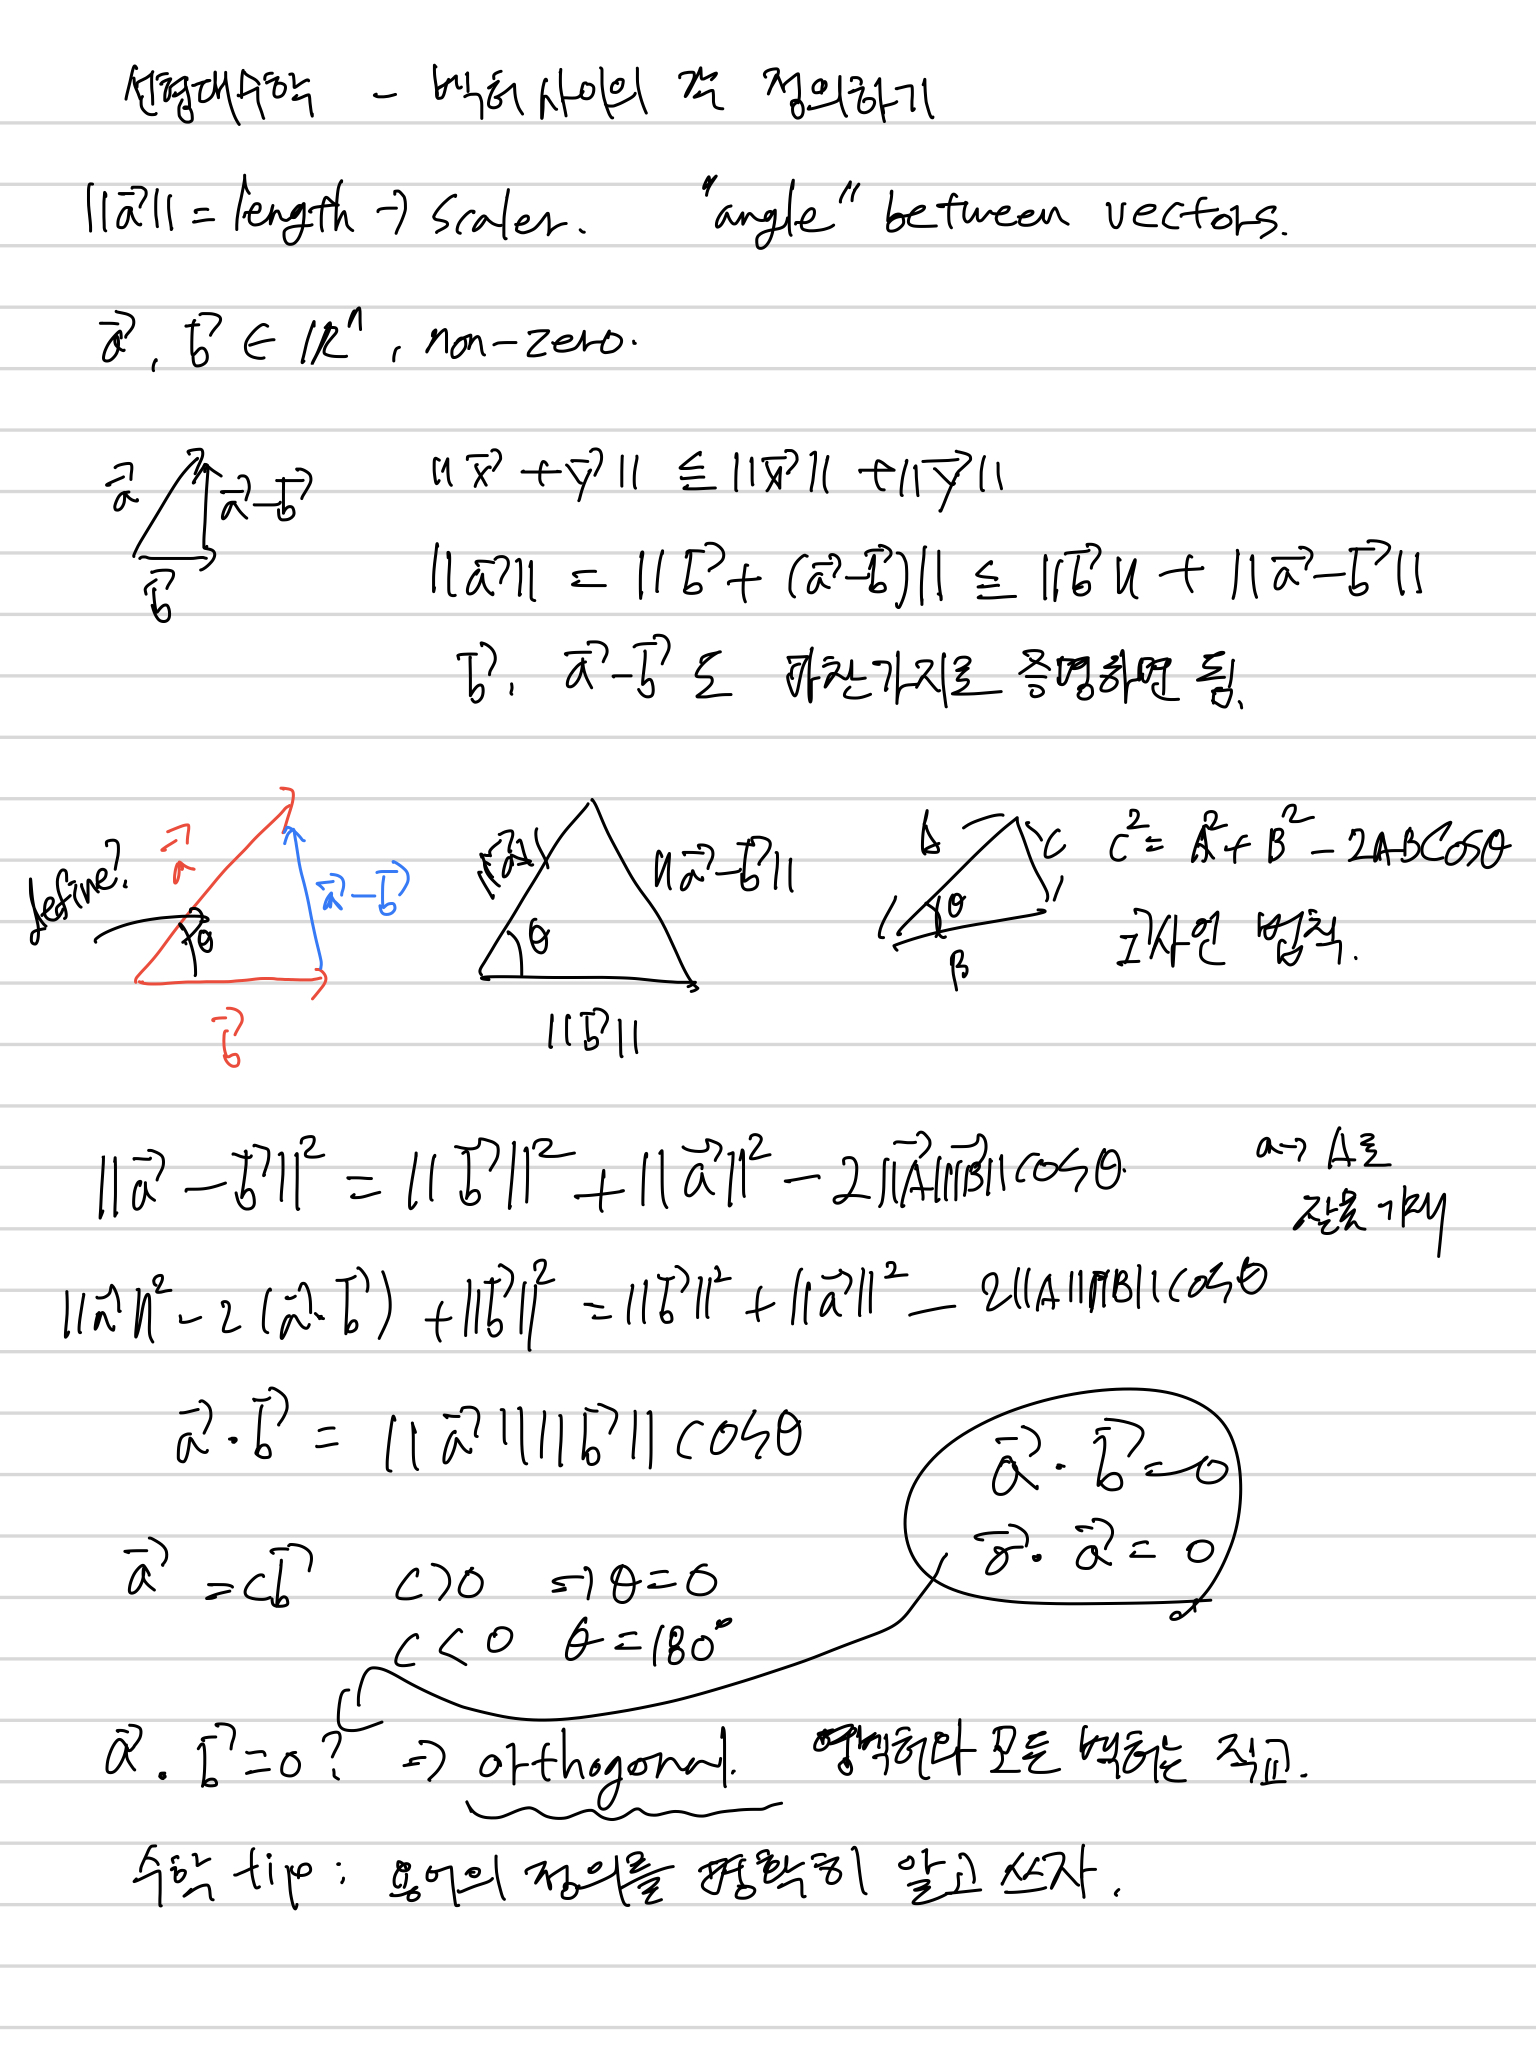 선형대수학 - 벡터 사이의 각 정의하기
||a⃗|| = length → scaler. "angle" between vectors.
a⃗, b⃗ ∈ ℝⁿ, non-zero.
a⃗ a⃗-b⃗ b⃗
||x⃗+y⃗|| ≤ ||x⃗|| + ||y⃗||
||a⃗|| = ||b⃗+(a⃗-b⃗)|| ≤ ||b⃗|| + ||a⃗-b⃗||
b⃗, a⃗-b⃗ 도 마찬가지로 증명하면 됨.
define? a⃗ θ a⃗-b⃗ b⃗
||a⃗|| θ ||a⃗-b⃗|| ||b⃗||
A C θ B
C² = A² + B² - 2ABCosθ
코사인 법칙.
||a⃗-b⃗||² = ||b⃗||² + ||a⃗||² - 2||A⃗||||B⃗||cosθ.
a→A로
잘못 기재
||a⃗||² - 2(a⃗·b⃗) + ||b⃗||² = ||b⃗||² + ||a⃗||² - 2||A||||B||cosθ
a⃗·b⃗ = ||a⃗||||b⃗||cosθ
a⃗·b⃗=0
o⃗·a⃗=0
a⃗ = cb⃗ c>0 ⇒ θ=0
c<0 θ=180°
a⃗·b⃗=0? ⇒ orthogonal. 영벡터와 모든 벡터는 직교.
수학 tip: 용어의 정의를 명확히 알고 쓰자.